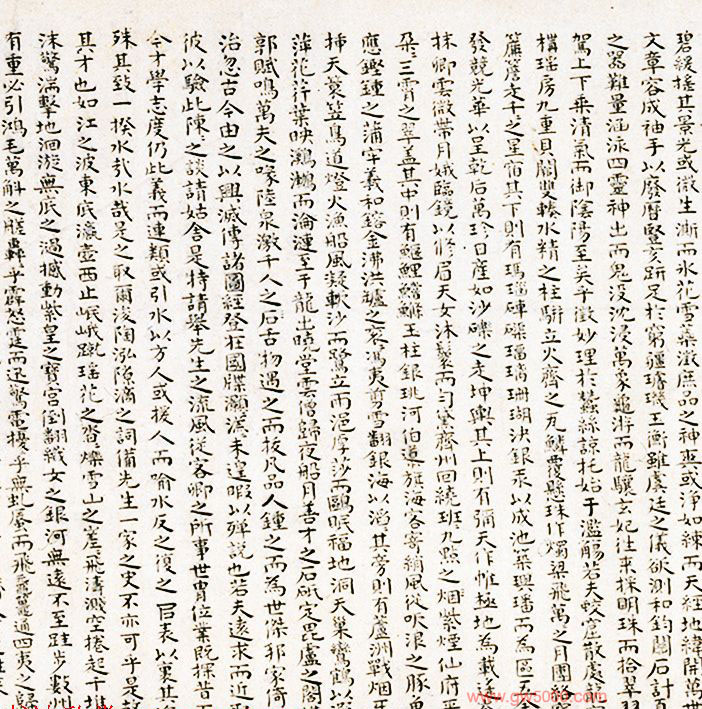 碧縱搖其景光或徵生澌而氷花雪藥澂庶品之神或淨如練而天經地緯開萬世
文章容成袖手以廢曆豎亥跰足於窮疆璿璣玉衡雖虞廷之儀欲測和鈞關石計
之器難量涵泳四靈神出而鬼没沈浸萬象龜游而龍驤玄妃往来採明珠而拾翠
駕上下乘清氣而御陰陽至矣乎徵妙理於蠶絲諒托始于濫觴若夫蛟窟散處
構瑤房九重貝闕雙轅水精之柱駢立火齊之瓦鱗覆懸珠作燭梁飛萬之月團
簾簷走千之星宿其下則有瑪瑙硨磲璠璵珊瑚決銀汞以成池築璵璠而為區
發競光華以呈乾后萬珍日産如沙礫之走坤輿其上則有彌天作帷極地為載
抹卿雲微崇月娥臨鏡以修眉天女沐髮而勻黛齊州回繞班九點之烟紫煙仙府
朶三霄之翠盖其中則有鱣鯉鱨鰷玉柱銀珧河伯導旗海客寄綃風從吹浪之豚
應鏗鍾之蒲牢義和鎔金沸洪爐之衮馮夷剪雪翻銀海以滔其旁則有蘆洲戰烟
挿天蓑笠鳥道燈火漁船風凝軟沙而鷺立雨浥厚莎而鷗眠福地洞天巢鸞鶴以
萍花荇葉映鸂鶒而淪漣至于龍出曉堂雲僧歸夜船月善才之石斫定毘盧之閣
郭賦鳴萬夫之喙陸泉澂千人之后古物遇之而拔凡品人鍾之而為世傑邦家倚
治忽古今由之以興滅傳諸圖經登在國牒灝漾未遑暇以殫説也若夫遠求而近
彼以驗此陳之談請姑舍是特請舉先生之流風従客卿之所事世胄位業既探昔
今才學志度仍此義而連類或引水以方人或援人而喻水反之復之目表以裏其
殊其致一揆水哉水哉是之取爾浚陶泓隳滴之詞備先生一家之史不亦可乎是
其才也如江之波東底瀛壺西止岷峨蹴瑤花之沓爍雪山之差飛濤濺空捲起千堆
沫驚湍擊地洄漩無底之過撼動紫皇之寶宮倒翻織女之銀河無遠不至跬步數州
有重必引鴻毛萬斛之艖轟乎霹怒霆而迅驚電擾乎無虬蜃而飛黿鼉通四夷之歸
www.gw500.com